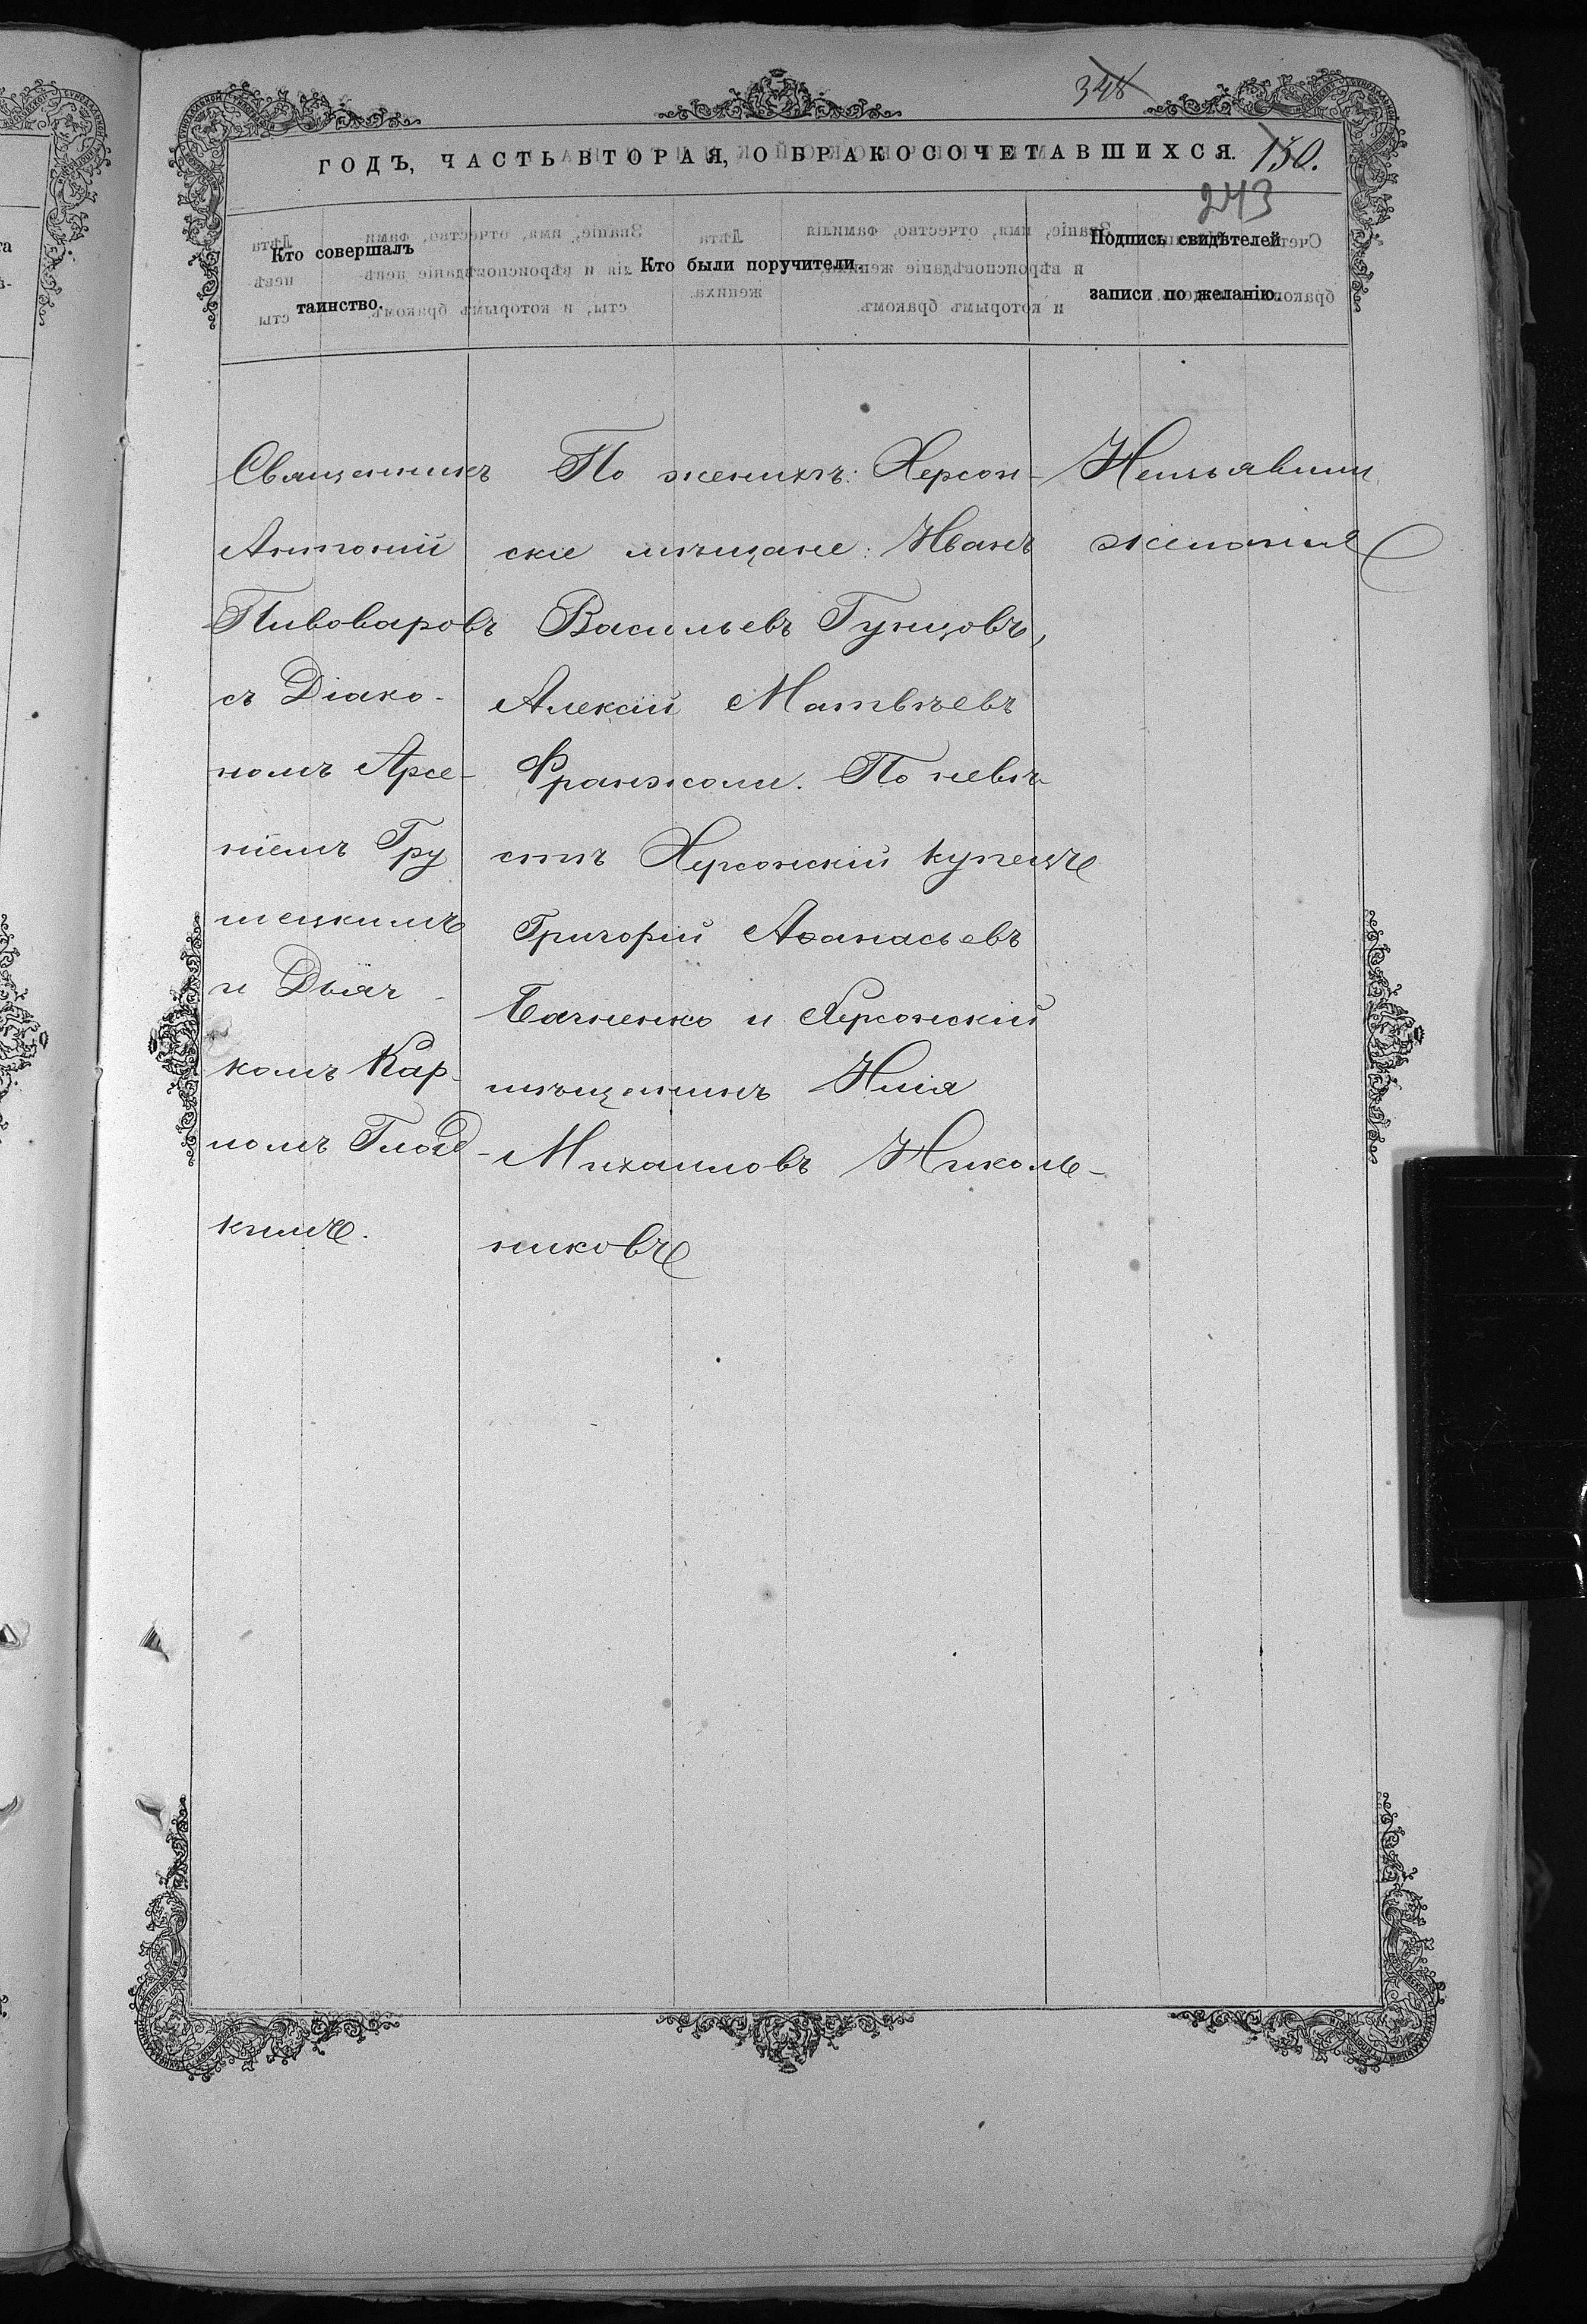 348
ГОДЪ, ЧАСТЬ ВТОРАЯ, О БРАКОСОЧЕТАВШИХСЯ.
150.
243
Кто совершалъ
таинство.
Кто были поручители.
Подпись свидѣтелей
записи по желанію.
Священникъ
Антоній
Пивоваровъ
съ Діако-
номъ Арсе-
ніемъ Гру
шецкимъ
и Дьяч-
комъ Кар-
помъ
кимъ.
По женихѣ: Херсон-
скіе мѣщане: Иванъ
Васильевъ
Алексій Матвѣевъ
Франжоли. По невѣ-
стѣ Херсонскій купецъ
Григорій Аѳанасьевъ
Бачненко и Херсонскій
мѣщанинъ Илія
Михаиловъ Николь-
никовъ
Неизъявили
желанія